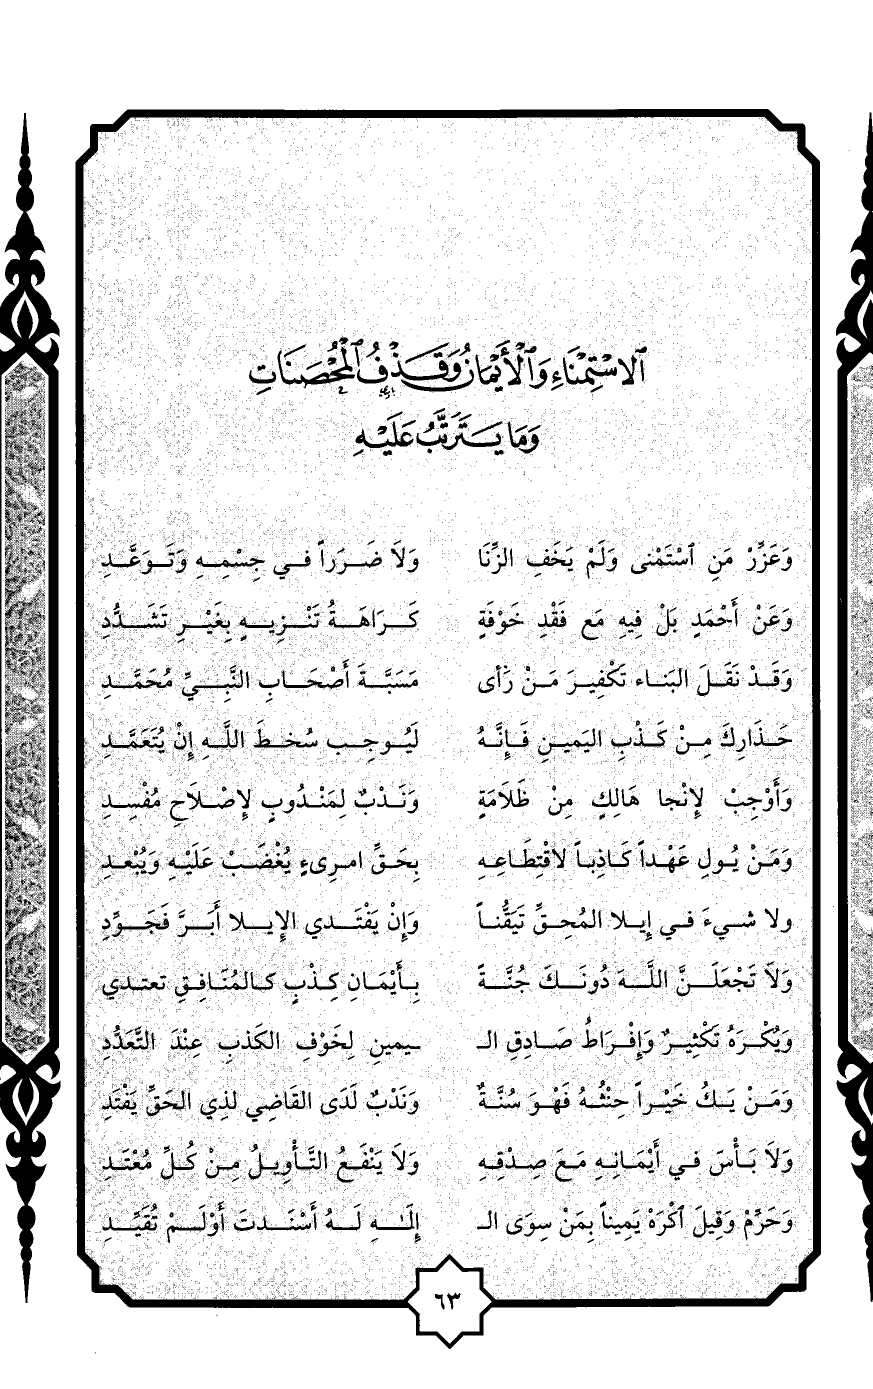 الاسْتِمْنَاءِ وَالْأَيْمَانُ وَقَذْفُ الْمُحْصَنَاتِ
وَمَا يَتَرَتَّبُ عَلَيْهِ
وَعَزِّرْ مَنِ ٱسْتَمْنى وَلَمْ يَخَفِ الزِّنَا وَلَا ضَرَراً في جِسْمِهِ وَتَوَعَّدِ
وَعَنْ أَحْمَدٍ بَلْ فِيهِ مَع فَقْدِ خَوْفَةٍ كَرَاهَةُ تَنْزِيهٍ بِغَيْرِ تَشَدُّدِ
وَقَدْ نَقَلَ البَنَاء تَكْفِيرَ مَنْ رَأى مَسَبَّةَ أَصْحَابِ النَّبِيِّ مُحَمَّدِ
حَذَارِكَ مِنْ كَذْبِ اليَمينِ فَإِنَّهُ لَيُوجِب سُخطَ اللَّهِ إِنْ يُتَعَمَّدِ
وَأَوْجِبْ لإِنْجا هَالِكٍ مِنْ ظَلَامَةٍ وَنَدْبٌ لِمَنْدُوبٍ لإِصْلَاحِ مُفْسِدِ
وَمَنْ يُولِ عَهْداً كَاذِباً لاقْتِطَاعِهِ بِحَقِّ امرِىءٍ يُغْضَبْ عَلَيْهِ وَيُبْعدِ
ولا شيءَ في إيلا المُحِقِّ تَيَقُّناً وَإِنْ يَفْتَدي الإيلا أَبَرَّ فَجَوِّدِ
وَلَا تَجْعَلَنَّ اللَّهَ دُونَكَ جُنَّةً بِأَيْمَانِ كِذْبٍ كالمُنَافِقِ تعتدي
وَيُكْرَهُ تَكْثِيرٌ وَإِفْرَاطُ صَادِقِ الـ ـيمينِ لِخَوْفِ الكَذبِ عِنْدَ التَّعَدُّدِ
وَمَنْ يَكُ خَيْراً حِنْثُهُ فَهْوَ سُنَّةٌ وَنَدْبٌ لَدَى القَاضِي لذِي الحَقِّ يَفْتَدِ
وَلَا بَأْسَ في أَيْمَانِهِ مَعَ صِدْقِهِ وَلَا يَنْفَعُ التَّأْوِيلُ مِنْ كُلِّ مُعْتَدِ
وَحَرِّمْ وَقِيلَ ٱكْرَهْ يَمِيناً بِمَنْ سِوَى الـ إِلَـٰهِ لَهُ أَسْنَدتَ أَوْلَمْ تُقَيِّدِ
٦٣